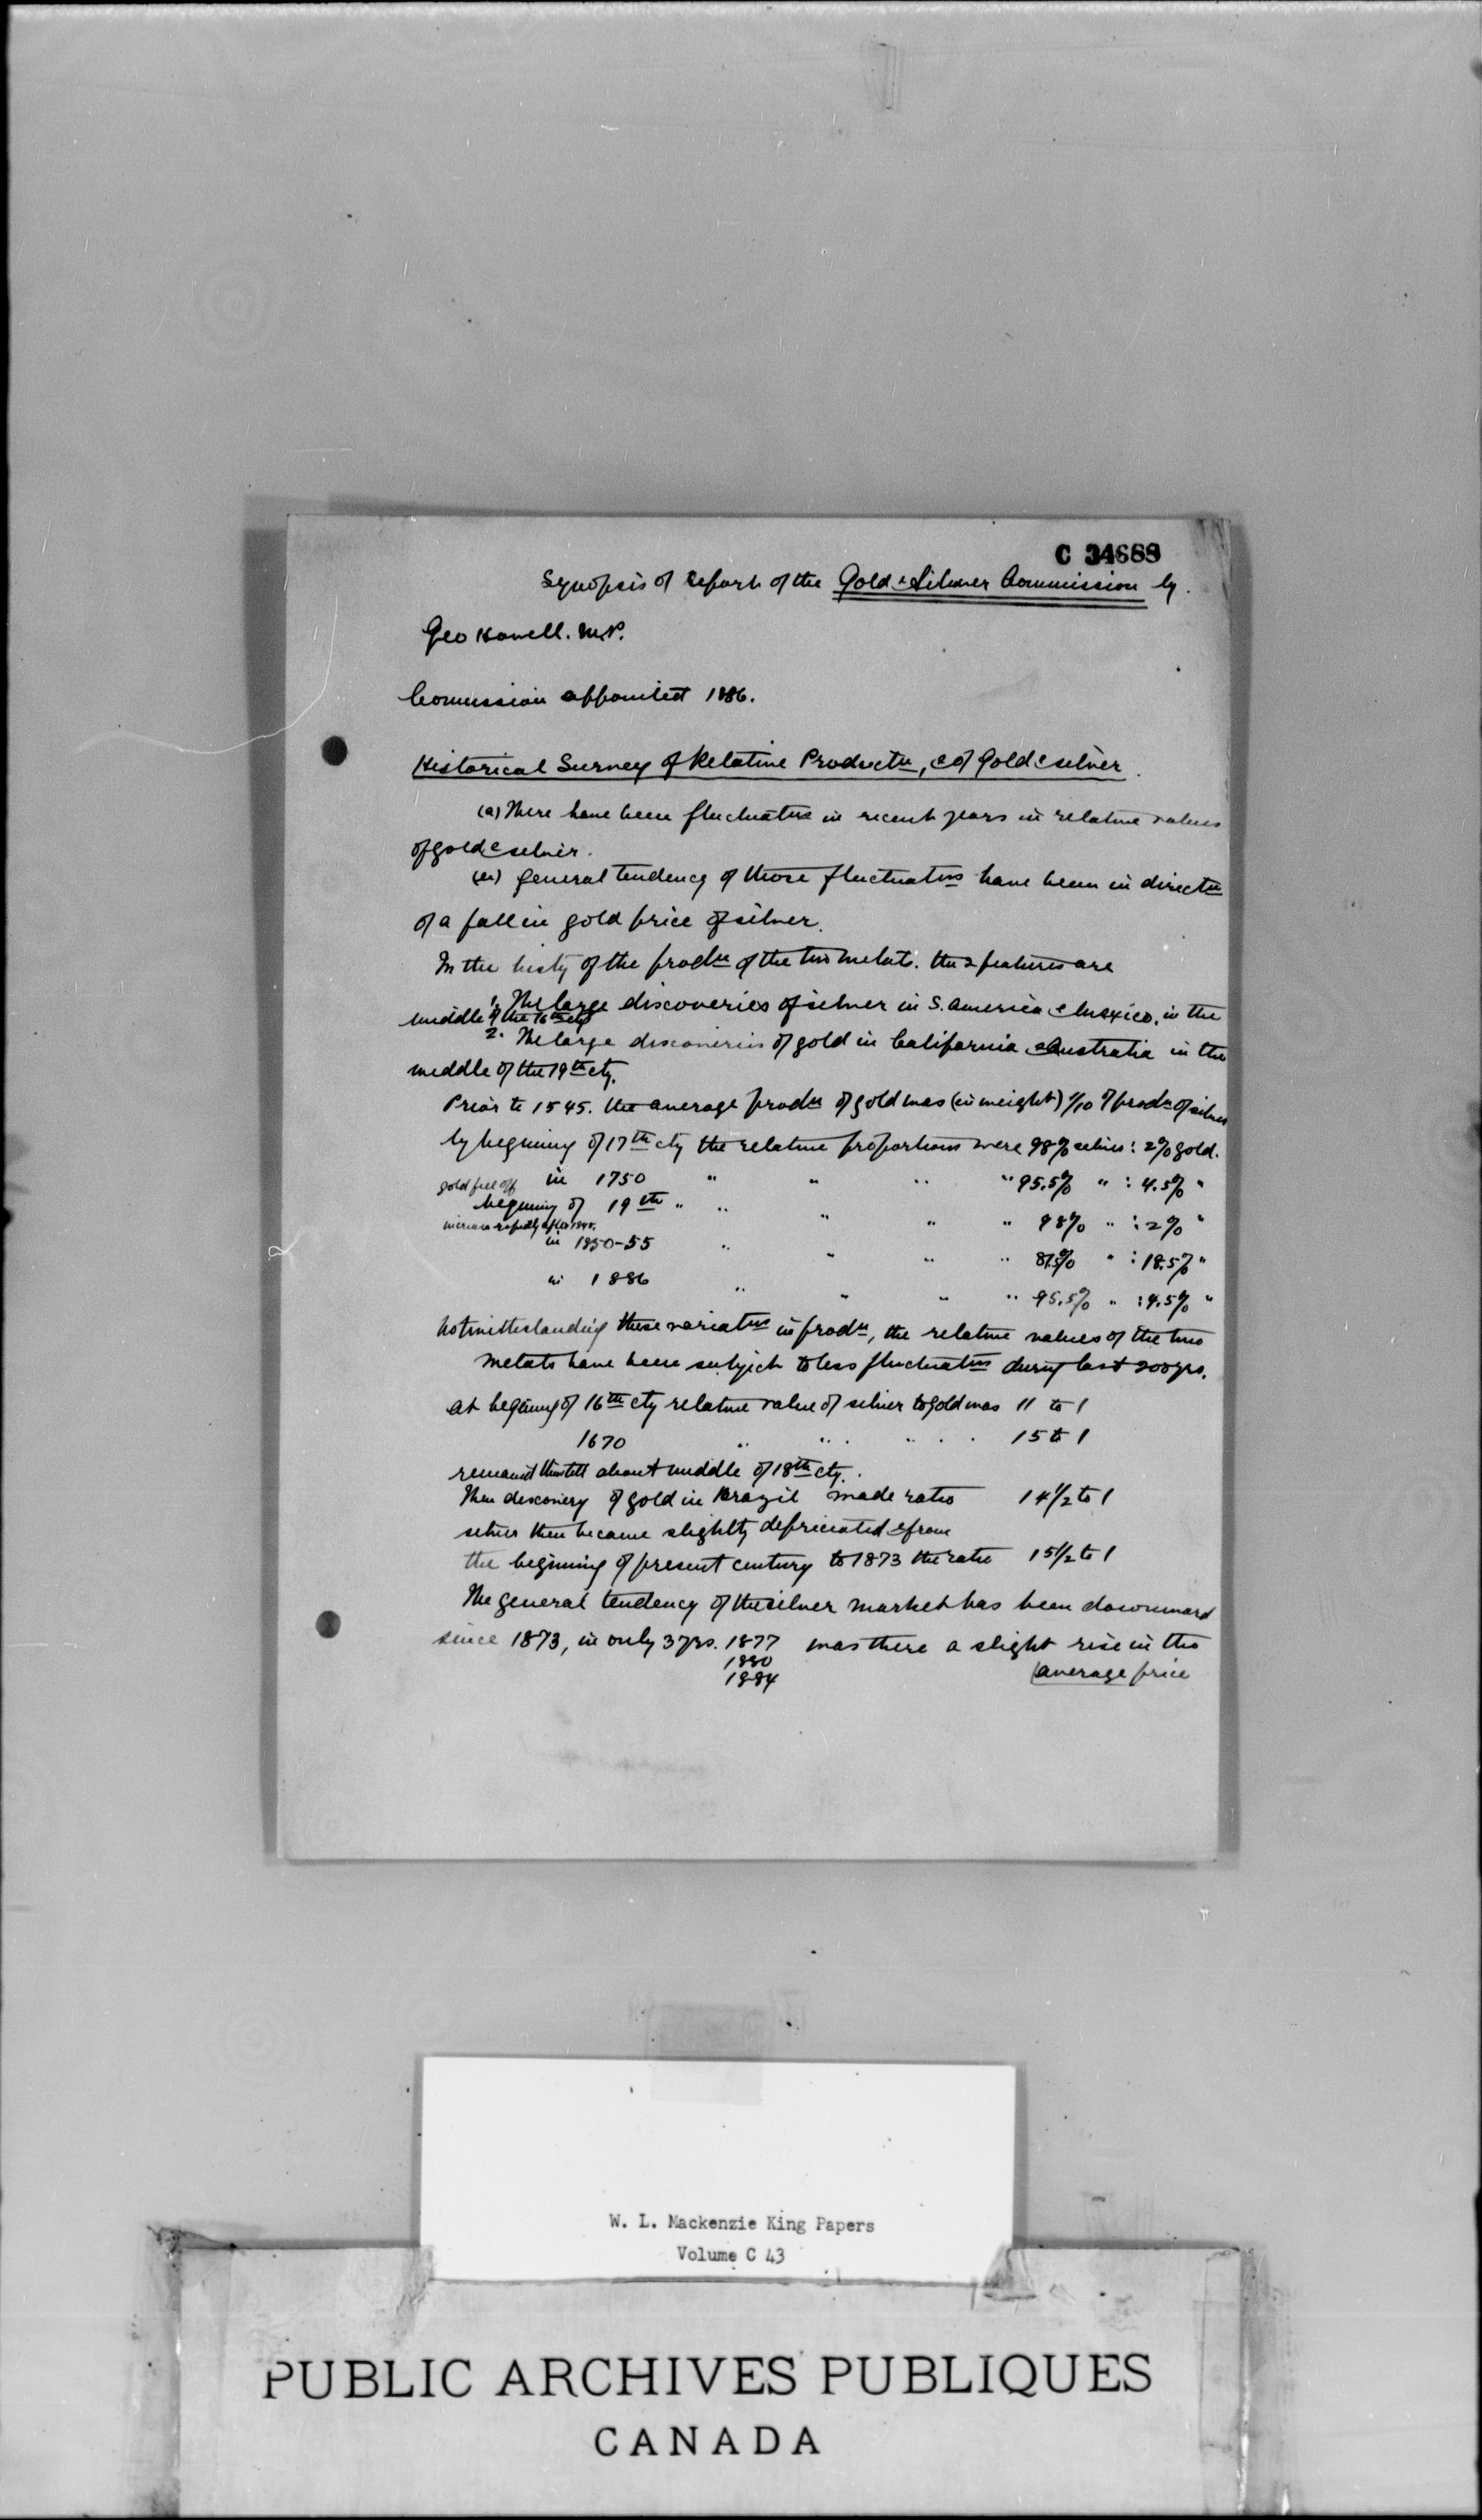 C 34688
Synopsis of Report of the Gold & Silver Commission by
Geo Howell. M.P.
Commission appointed 1886.
Historical Survey of Relative Productn, & of Gold & silver.
(a) There have been fluctuatns in recent years in relative values
of gold & silver.
general tendency of those fluctuatns have been in directn
of a fall in gold price of silver.
In the histy of the prodn of the two metals. the 2 features are
1. The large discoveries of silver in S. America & Mexico. in the
middle of the 16th cty
2. The large discoveries of gold in California & Australia in the
middle of the 19th cty.
Prior to 1545. the average prodn of gold was (in weight) 1/10 of prodn of silver
by beginning of 17th cty the relative proportions were 98% silver : 2% gold.
gold fell off in 1750 " " " " 95.5% " : 4.5% "
beginning of 19th " " " " " 98% " : 2% "
increase rapidly after 1848.
in 1850-55 " " " " 81.5% " : 18.5% "
in 1886 " " " " 95.5% " : 4.5% "
Notwithstanding these variatns in prodn, the relative values of the two
metals have been subject to less fluctuatns during last 200 yrs.
At beginning of 16th cty relative value of silver to gold was 11 to 1
1670 " " " " " 15 to 1
remained thus till about middle of 18th cty.
Then discovery of gold in Brazil made ratio 14 1/2 to 1
silver then became slightly depreciated & from
the beginning of present century to 1873 the ratio 15 1/2 to 1
The general tendency of the silver market has been downward
since 1873, in only 3 yrs. 1877 was there a slight rise in the
1880
1884 average price
W. L. Mackenzie King Papers
Volume C 43
PUBLIC ARCHIVES PUBLIQUES
CANADA